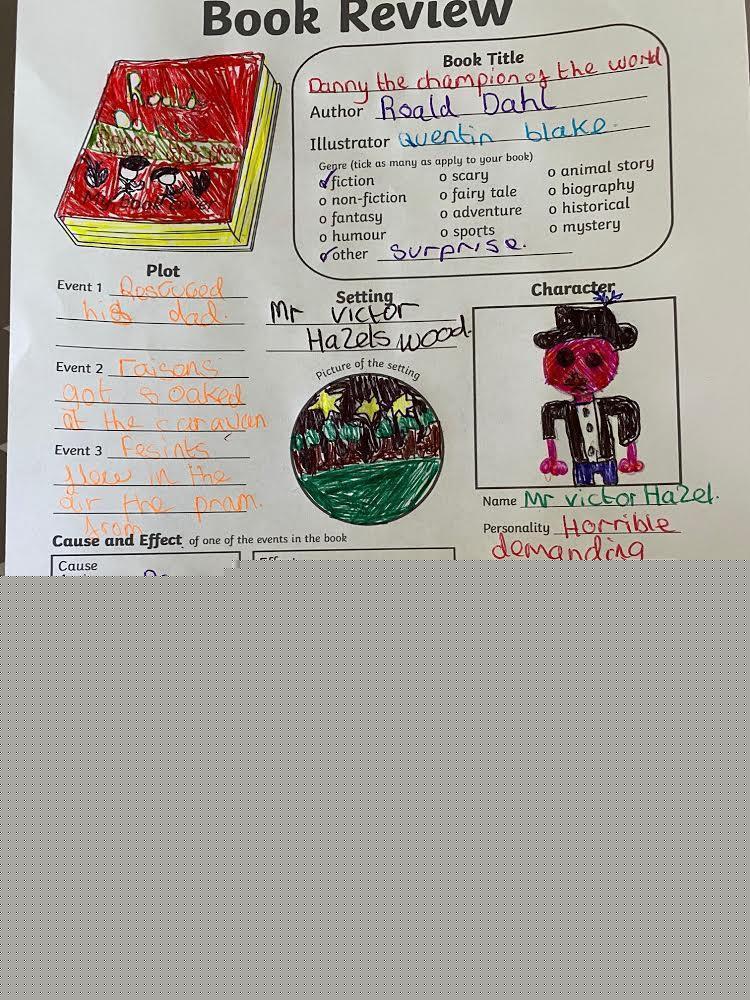 Book Review
Roald
Dahl
My book cover
Book Title
Danny the champion of the world
Author Roald Dahl
Illustrator quentin blake.
Genre (tick as many as apply to your book)
fiction
o non-fiction
o fantasy
o humour
other surprise.
o scary
o fairy tale
o adventure
o sports
o animal story
o biography
o historical
o mystery
Plot
Event 1 Rescued
his dad.
Event 2 raisons
got soaked
at the caravan
Event 3 Fesints
flew in the
air the pram.
from
Setting
Mr victor
Hazels wood.
Picture of the setting
Character
Name Mr victor Hazel.
Personality Horrible
demanding
Cause and Effect of one of the events in the book
Cause